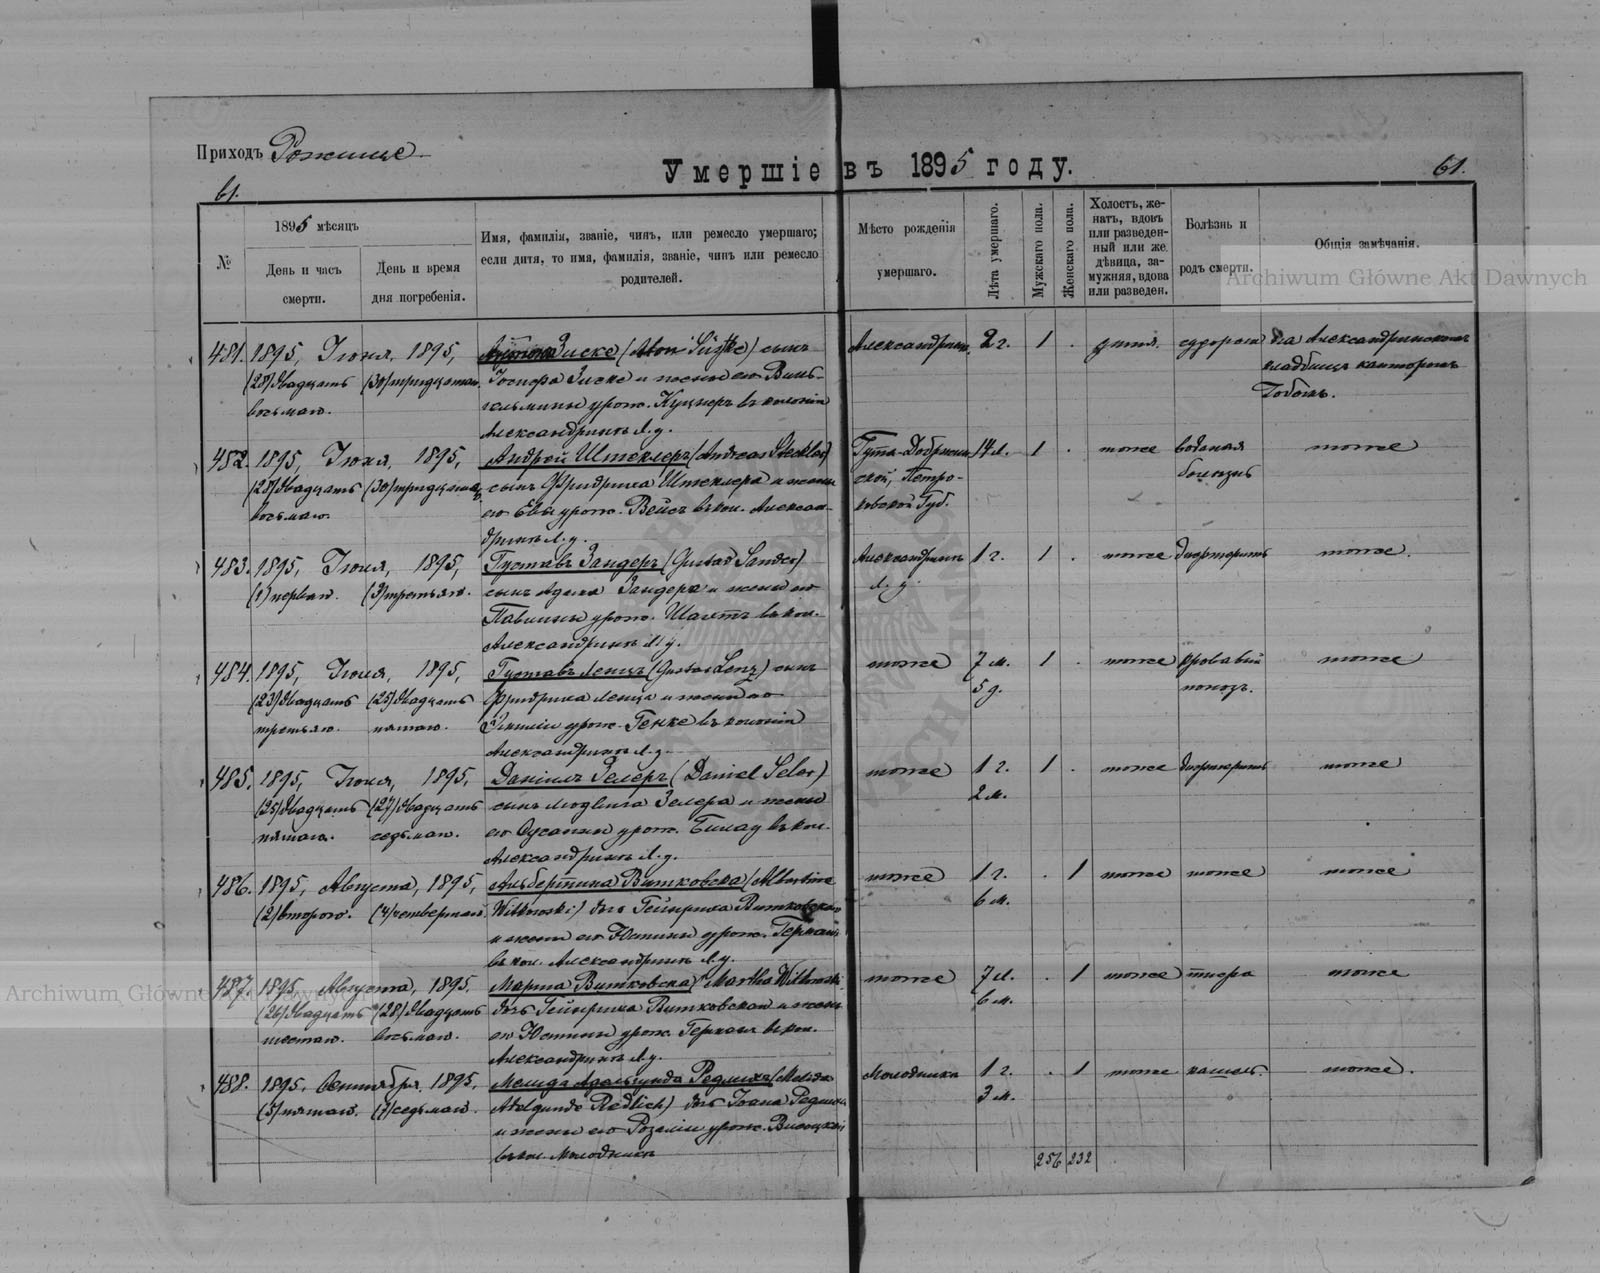 Приходъ Рожище
Умершіе въ 1895 году.
61.
61.
№
1895 мѣсяцъ
День и часъ смерти.
День и время дня погребенія.
Имя, фамилія, званіе, чинъ, или ремесло умершаго;
если дитя, то имя, фамилія, званіе, чинъ или ремесло
родителей.
Мѣсто рожденія
умершаго.
Лѣта умершаго.
Мужскаго пола.
Женскаго пола.
Холостъ, же-
натъ, вдовъ
или разведен-
ный или же
дѣвица, за-
мужняя, вдова
или разведен.
Болѣзнь и
родъ смерти.
Общія замѣчанія.
Archiwum Główne Akt Dawnych
481. 1895, Іюня, 1895, Зиске сынъ Александринъ 2 г. 1 . дитя. на Александринскомъ
(28) двадцать (30) тридцатаго. Зиске и жены его Виль-
восьмаго. гельмины урож. въ колоніи
Александринъ Л. у.
482. 1895, Іюня, 1895, Андрей Штеклеръ (Andreas Steckler) Гута-Добринской 14 л. 1 . тоже водяная тоже
(28) двадцать (30) тридцатаго. сынъ Фридриха Штеклера и жены Петро-
восьмаго. его Евы урож. Вейсъ въ кол. Алексан- ковской Губ. болезнь
дринъ Л. у.
483. 1895, Іюля, 1895, Густавъ Зандеръ (Gustav Sander) Александринъ 1 г. 1 . тоже дифтеритъ тоже.
(1) перваго. (3) третьяго. сынъ Адама Зандера и жены его Л. у.
Павлины урож. въ кол.
Александринъ Л. у.
484. 1895, Іюля, 1895, Густавъ Ленцъ (Gustav Lenz) сынъ тоже 7 м. 1 . тоже кровавый тоже
(23) двадцать (25) двадцать Фридриха Ленца и жены его 5 д. поносъ.
третьяго. пятаго. Эмиліи урож. Генке въ колоніи
Александринъ Л. у.
485. 1895, Іюля, 1895, Даніилъ Зелеръ (Daniel Seler) тоже 1 г. 1 . тоже дифтеритъ тоже
(25) двадцать (27) двадцать сынъ Людвига Зелера и жены 2 м.
пятаго. седьмаго. его Сусанны урож. въ кол.
Александринъ Л. у.
486. 1895, Августа, 1895, Альбертина Витковска (Albertine тоже 1 г. . 1 тоже тоже тоже
(2) втораго. (4) четвертаго. Witkowski) дочь Гейнриха Витковскаго 6 м.
и жены его Юстины урож. Германъ
въ кол. Александринъ Л. у.
487. 1895, Августа, 1895. Марта Витковска (Martha Witkowski тоже 7 л. . 1 тоже тоже
(26) двадцать (28) двадцать дочь Гейнриха Витковскаго и жены 6 м.
шестаго. восьмаго. его Юстины урож. Германъ въ кол.
Александринъ Л. у.
Archiwum Główne Akt Dawnych
488. 1895, Сентября, 1895, Мелида Адельгунда Редлихъ (Melida Молодника 1 г. . 1 тоже кашель. тоже.
(5) пятаго. (7) седьмаго. Adelgunde Redlich) дочь Іоана Редлихъ 3 м.
и жены его Розаліи урож.
въ кол. Молодникъ
256 232